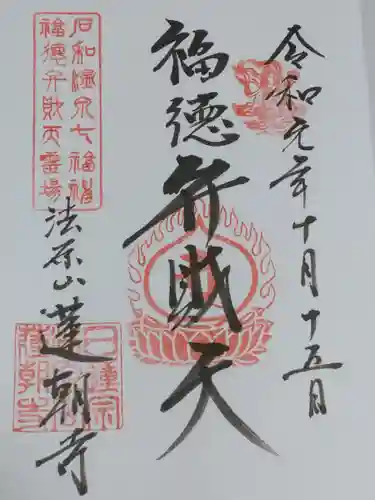 令和元年十月十五月
福徳弁財天
石和温泉七福神
福徳弁財天霊場
法原山蓮朝寺
日蓮宗
蓮朝寺